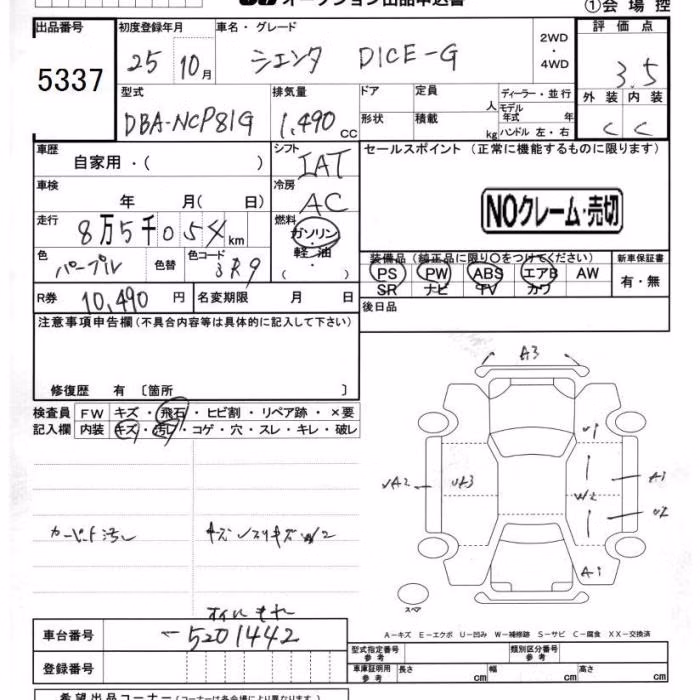 オークション出品申込書
①会場控
出品番号
5337
初度登録年月
25 10月
車名・グレード
シエンタ DICE-G
2WD
・
4WD
評価点
3.5
外装 内装
C C
型式
DBA-NCP81G
排気量
1,490 CC
ドア
形状
定員
人
積載
kg
ディーラー・並行
モデル年式 年
ハンドル 左・右
車歴
自家用・( )
シフト
IAT
セールスポイント (正常に機能するものに限ります)
NOクレーム・売切
車検
年 月( 日)
冷房
AC
走行
8万5千054km
燃料
ガソリン
・
軽油
・
( )
色
パープル
色替
色コード
3R9
装備品 (純正品に限り○をつけてください)
PS PW ABS エアB AW
SR ナビ TV カワ
新車保証書
有・無
R券 10,490 円
名変期限 月 日
後日品
注意事項申告欄 (不具合内容等は具体的に記入して下さい)
修復歴 有 〔箇所 〕
検査員
記入欄
FW キズ・飛石・ヒビ割・リペア跡・×要
内装 キズ・汚レ・コゲ・穴・スレ・キレ・破レ
カーペット汚レ
A3
U1
UA2
UA3
W2
A1
U2
A1
スペア
車台番号
-5201442
登録番号
A-キズ E-エクボ U-凹み W-補修跡 S-サビ C-腐食 XX-交換済
型式指定番号
参考
類別区分番号
参考
車庫証明用
参考
長さ cm 幅 cm 高さ cm
希望出品コーナー (コーナーは各会場により異なります。)